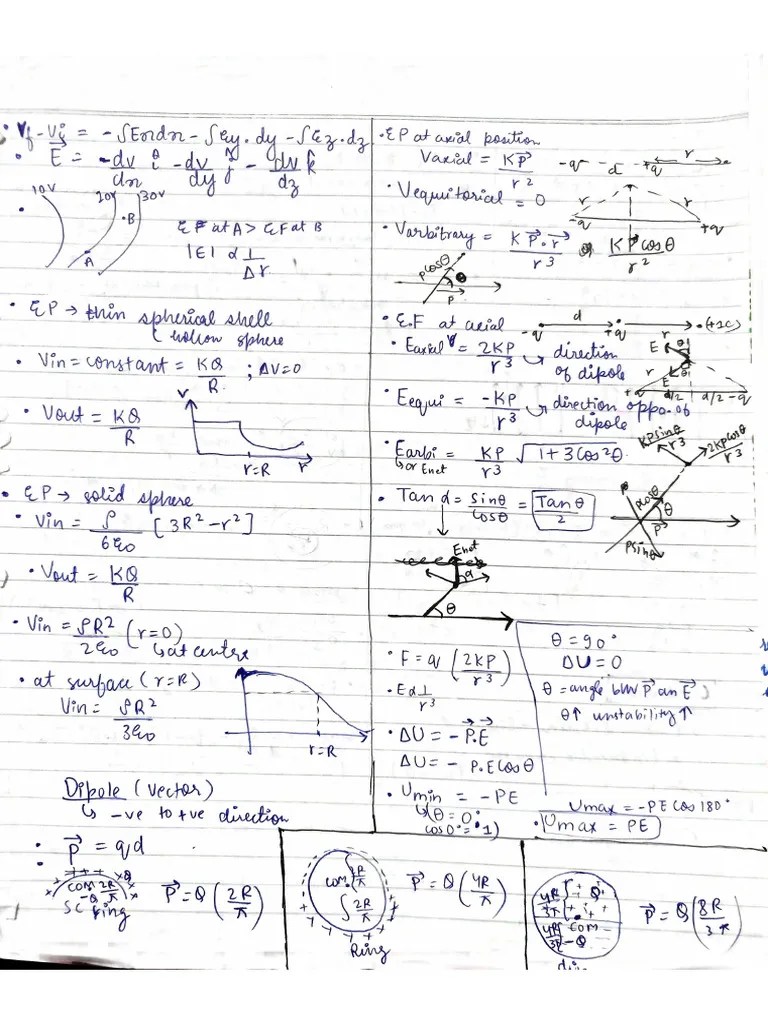 • Vf - Vi = -∫Exdx - ∫Ey.dy - ∫Ez.dz
• E⃗ = -dv/dx î - dv/dy ĵ - dv/dz k̂
10V 20V 30V
•B
A
EF at A > EF at B
|E| α 1/Δr
• EP → thin spherical shell
(hollow sphere
• Vin = constant = KQ/R ; ΔV=0
• Vout = KQ/R
V
r=R
r
• EP → solid sphere
• Vin = ρ/6ε0 [3R² - r²]
• Vout = KQ/R
• Vin = ρR²/2ε0 (r=0)
↳ at centre
• at surface (r=R)
Vin = ρR²/3ε0
r=R
Dipole (vector)
↳ -ve to +ve direction
• p⃗ = qd
+ + + +Q
com 2R/π
-Q
SC ring
P⃗ = Q (2R/π)
• EP at axial position
Vaxial = KP⃗/r²
-q - d - +q r
• Vequitorial = 0
r r
-q +q
• Varbitrary = K P⃗.r⃗/r³ or KP⃗cosθ/r²
pcosθ
θ
P
• E.F at axial
d
-q +q r •(+1C)
• Eaxial = 2KP/r³ ↳ direction
of dipole
E θ
r θ
E
+q d/2 d/2 -q
• Eequi = -KP/r³ ↳ direction oppo. of
dipole
• Earbi = KP/r³ √1+3cos²θ
↳ or Enet
KPsinθ/r³
2KPcosθ/r³
• Tan α = sinθ/cosθ = Tanθ/2
Pcosθ
θ
P
Psinθ
Enet
α
θ
• F = q (2KP/r³)
• E α 1/r³
• ΔU = -P⃗.E⃗
ΔU = - P.Ecosθ
• Umin = -PE
↳(θ = 0°
cos0° = 1)
θ = 90°
ΔU = 0
θ = angle b/w P⃗ an E⃗
θ↑ unstability↑
Umax = -PE cos 180°
• Umax = PE
com 2R/π
2R/π
+ + + + +
Ring
P⃗ = Q (4R/π)
4R/3π + + Q +
com
4R/3π -Q
P⃗ = Q (8R/3π)